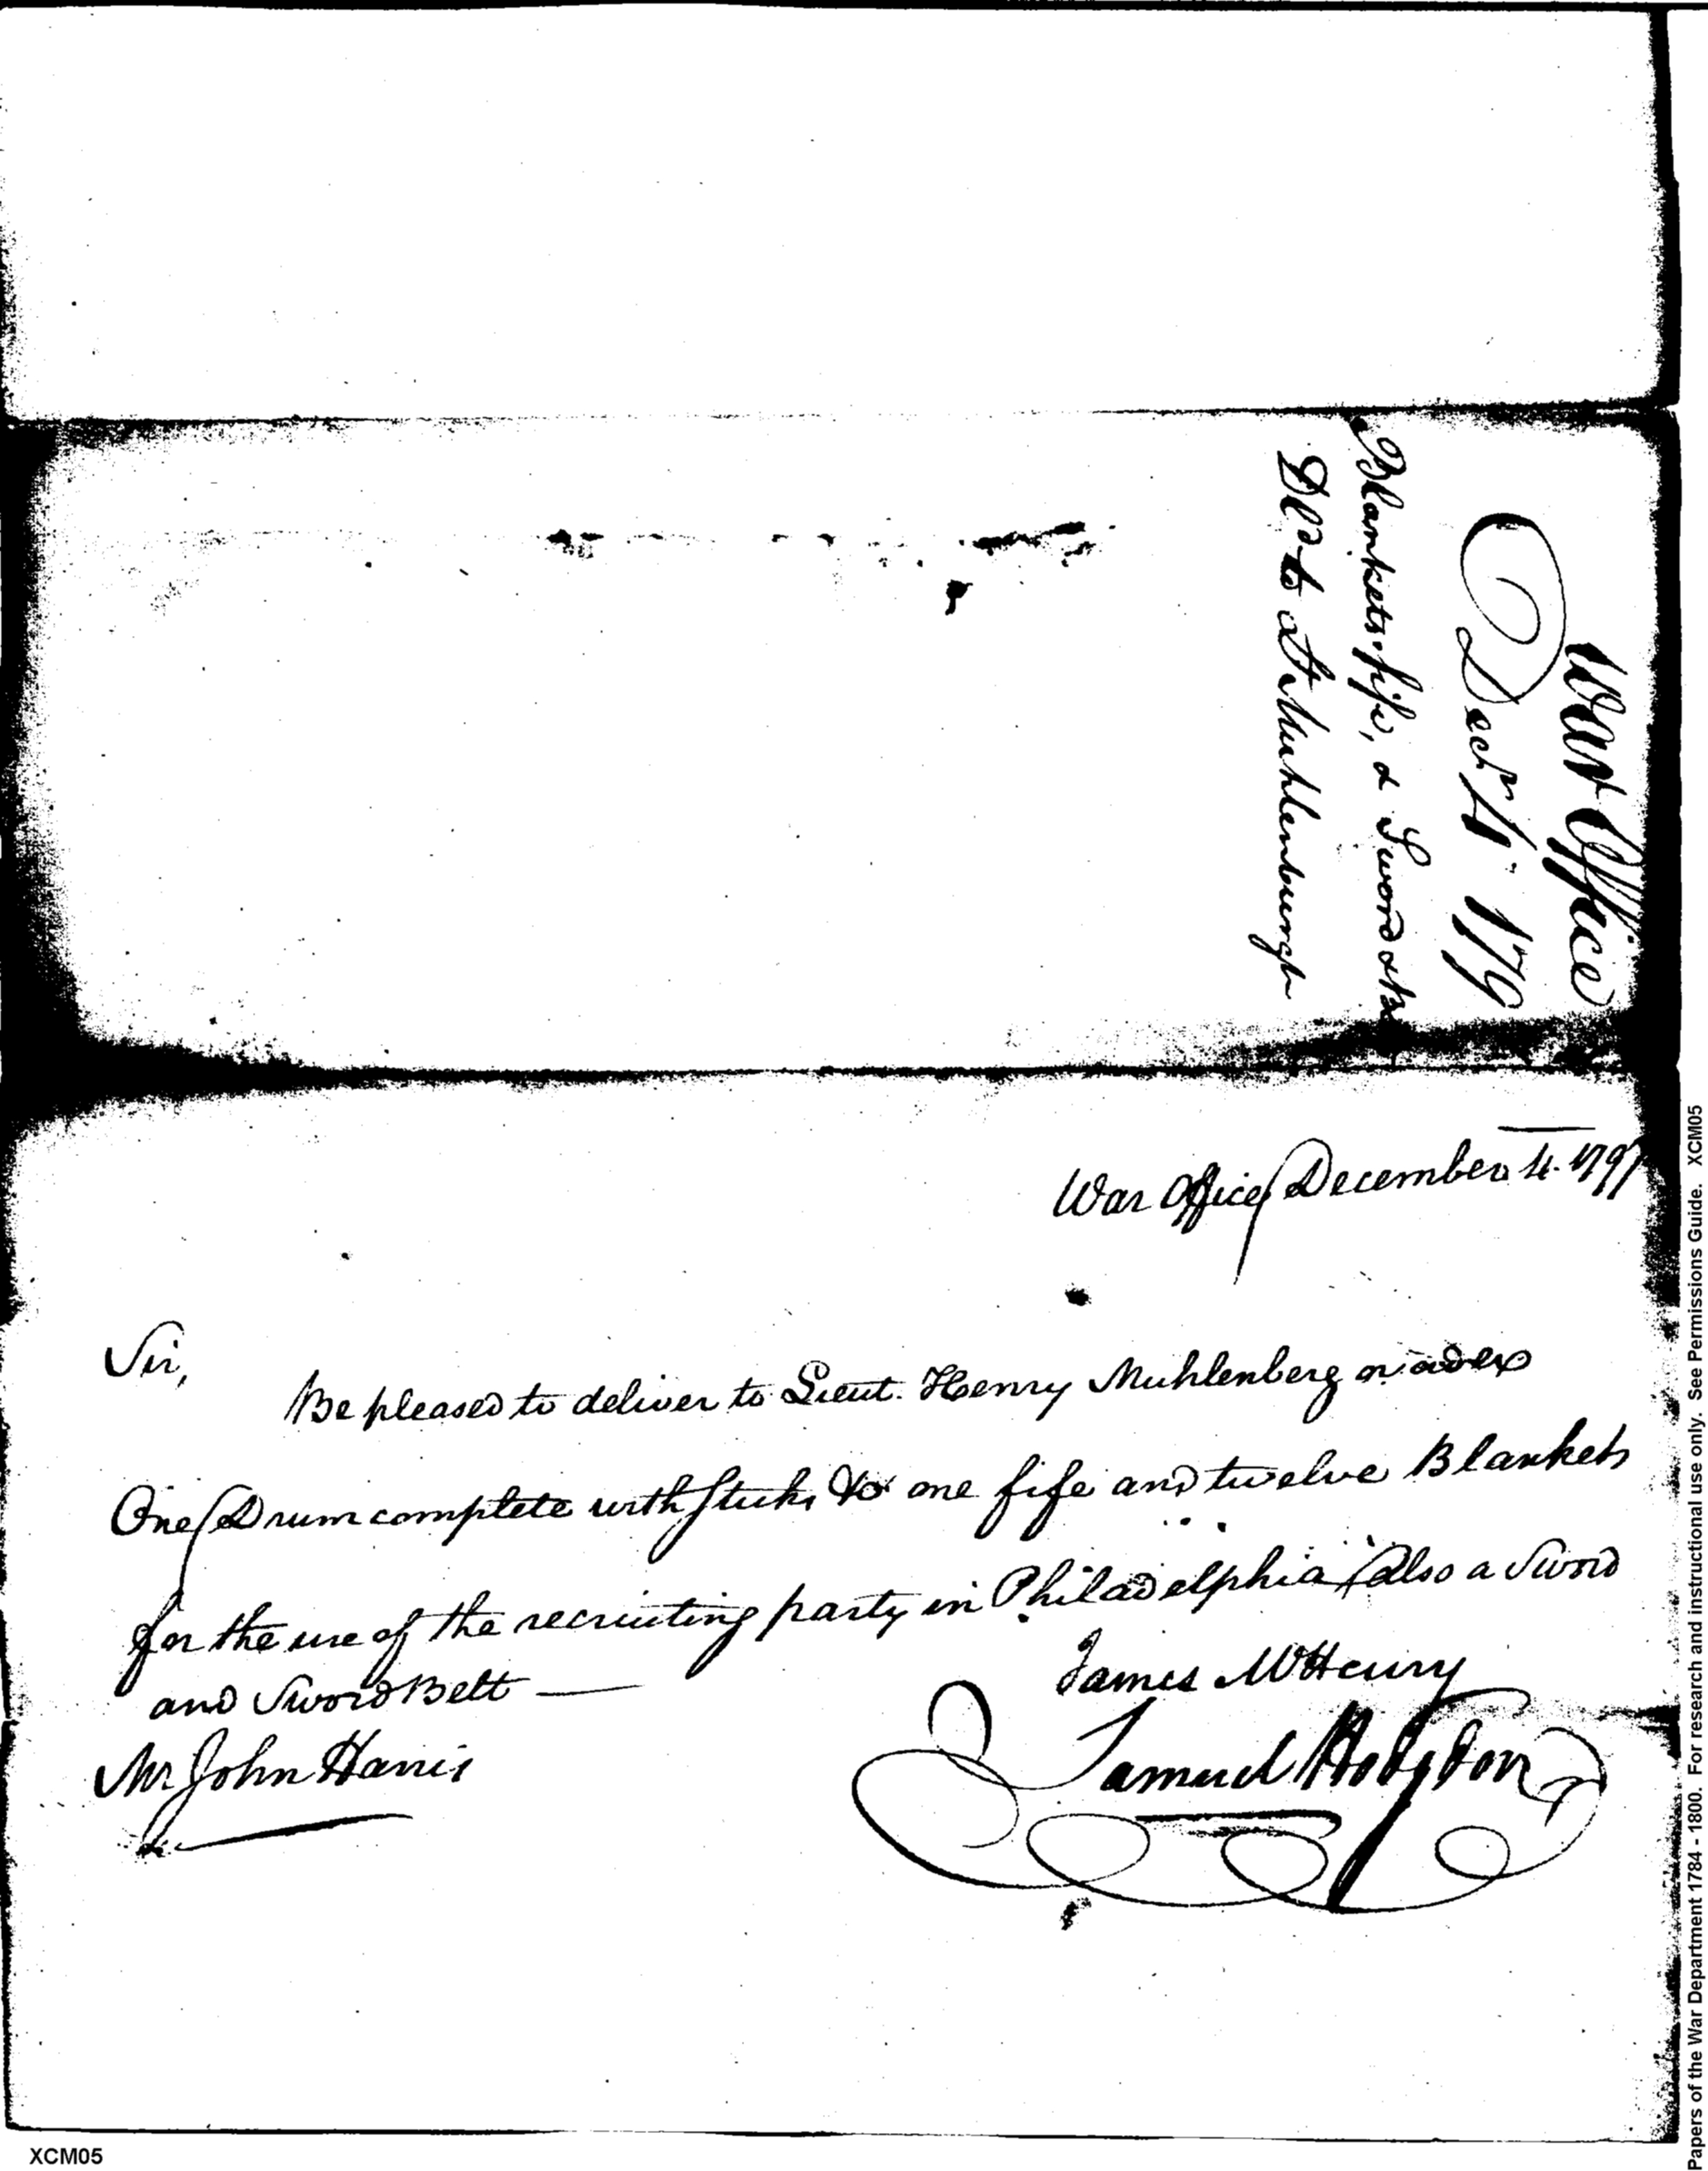 War Office
Decr. 4. 179
Blankets, fife, & Sword &
Dld. to Lt. Muhlenburgh
War Office December 4. 1797
Sir,
Be pleased to deliver to Lieut. Henry Muhlenberg or order
One Drum complete with sticks &c one fife and twelve Blankets
for the use of the recruiting party in Philadelphia, also a Sword
and Sword Belt —
James McHenry
Mr John Harris
Samuel Hodgdon
XCM05
Papers of the War Department 1784 - 1800. For research and instructional use only. See Permissions Guide. XCM05